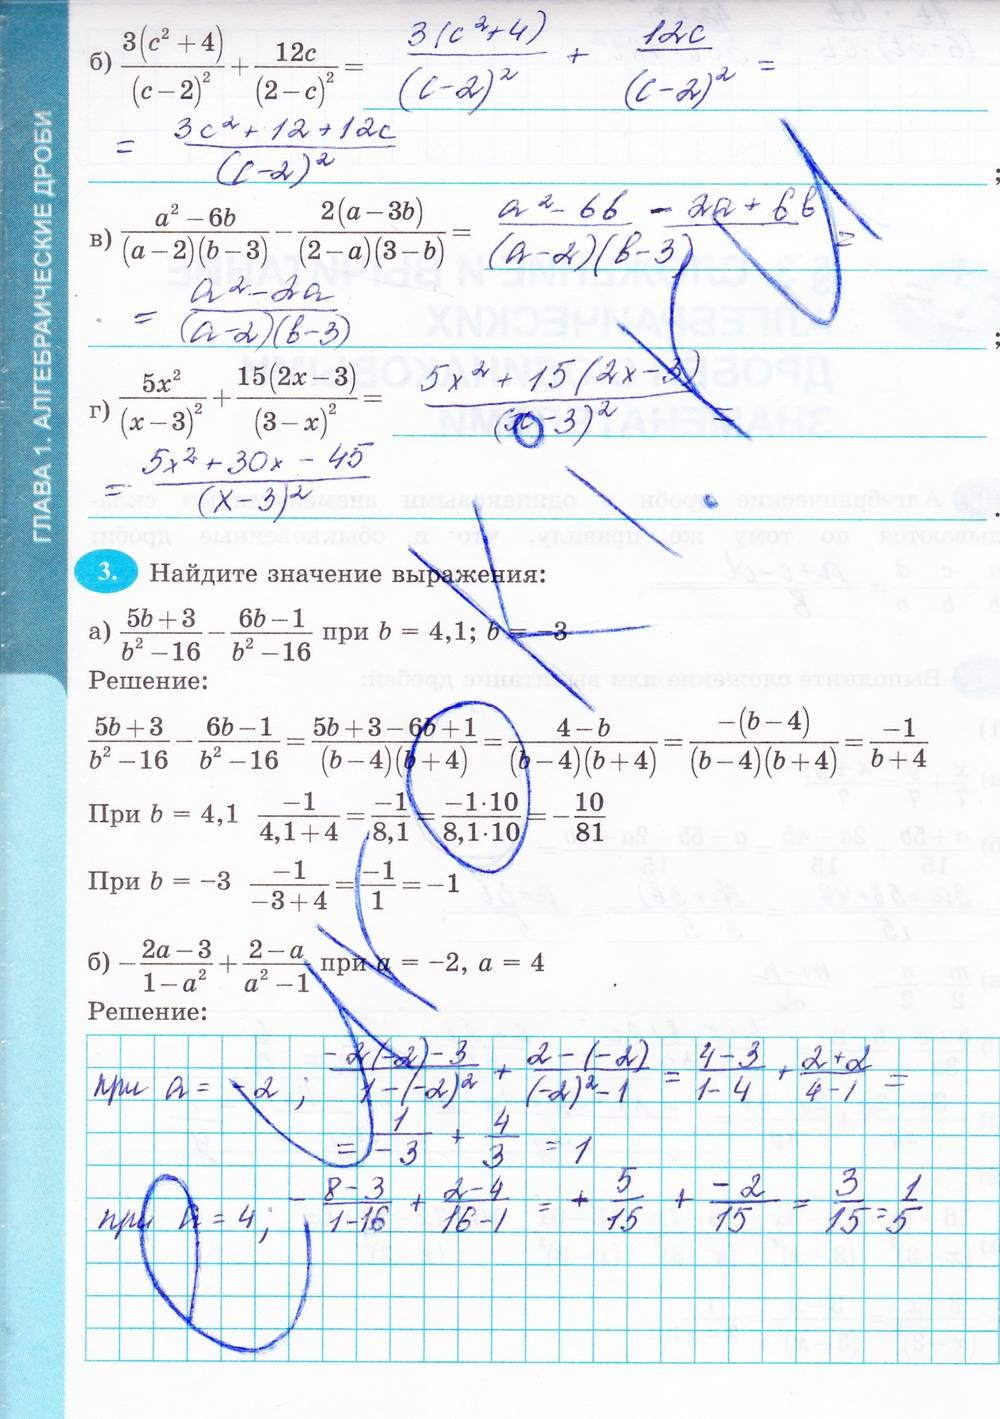 б) 3(c² + 4)/(c − 2)² + 12c/(2 − c)² = 3(c²+4)/(c−2)² + 12c/(c−2)² =
= 3c² + 12 + 12c/(c−2)² ;
в) a² − 6b/(a − 2)(b − 3) − 2(a − 3b)/(2 − a)(3 − b) = a² − 6b − 2a + 6b/(a−2)(b−3) =
= a² − 2a/(a−2)(b−3) ;
г) 5x²/(x − 3)² + 15(2x − 3)/(3 − x)² = 5x² + 15(2x − 3)/(x − 3)² =
= 5x² + 30x − 45/(x − 3)² .
ГЛАВА 1. АЛГЕБРАИЧЕСКИЕ ДРОБИ
3. Найдите значение выражения:
а) 5b + 3/b² − 16 − 6b − 1/b² − 16 при b = 4,1; b = −3
Решение:
5b + 3/b² − 16 − 6b − 1/b² − 16 = 5b + 3 − 6b + 1/(b − 4)(b + 4) = 4 − b/(b − 4)(b + 4) = −(b − 4)/(b − 4)(b + 4) = −1/b + 4
При b = 4,1 −1/4,1 + 4 = −1/8,1 = −1·10/8,1·10 = −10/81
При b = −3 −1/−3 + 4 = −1/1 = −1
б) −2a − 3/1 − a² + 2 − a/a² − 1 при a = −2, a = 4
Решение:
при a = −2; −2(−2)−3/1−(−2)² + 2−(−2)/(−2)²−1 = 4−3/1−4 + 2+2/4−1 =
= 1/−3 + 4/3 = 1
при a = 4; − 8−3/1−16 + 2−4/16−1 = + 5/15 + −2/15 = 3/15 = 1/5